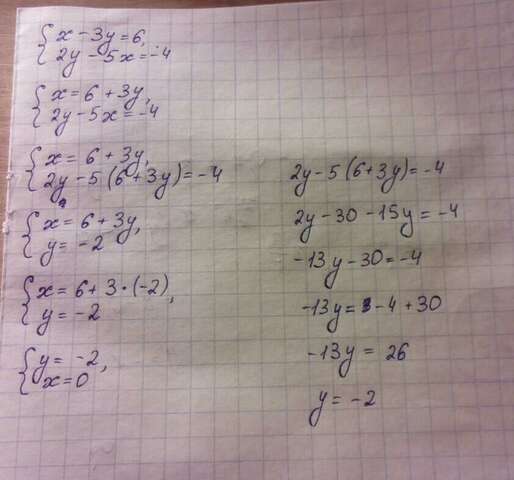 { x - 3y = 6,
2y - 5x = -4
{ x = 6 + 3y,
2y - 5x = -4
{ x = 6 + 3y,
2y - 5 (6 + 3y) = -4
{ x = 6 + 3y,
y = -2
{ x = 6 + 3 · (-2),
y = -2
{ y = -2,
x = 0
2y - 5 (6 + 3y) = -4
2y - 30 - 15y = -4
-13y - 30 = -4
-13y = -4 + 30
-13y = 26
y = -2